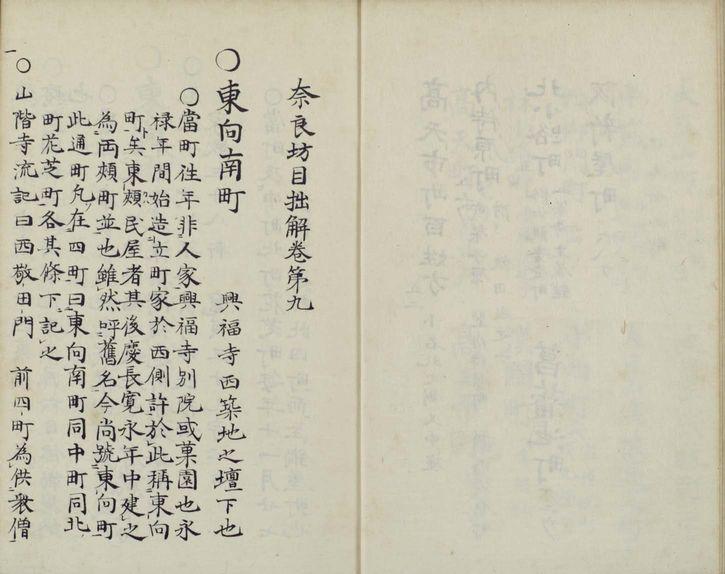 奈良坊目拙解卷第九
○東向南町 興福寺西築地之壇下也
○當町往年非人家興福寺別院或菓園也永
禄年間始造立町家於西側許於此稱東向
町矣東頰民屋者其後慶長寛永年中建之
為両頰町並也雖然呼舊名今尚號東向町
此通町凡在四町曰東向南町同中町同北
町芝町各其條下記之
○山階寺流記曰西敬田門 前四町為供衆僧